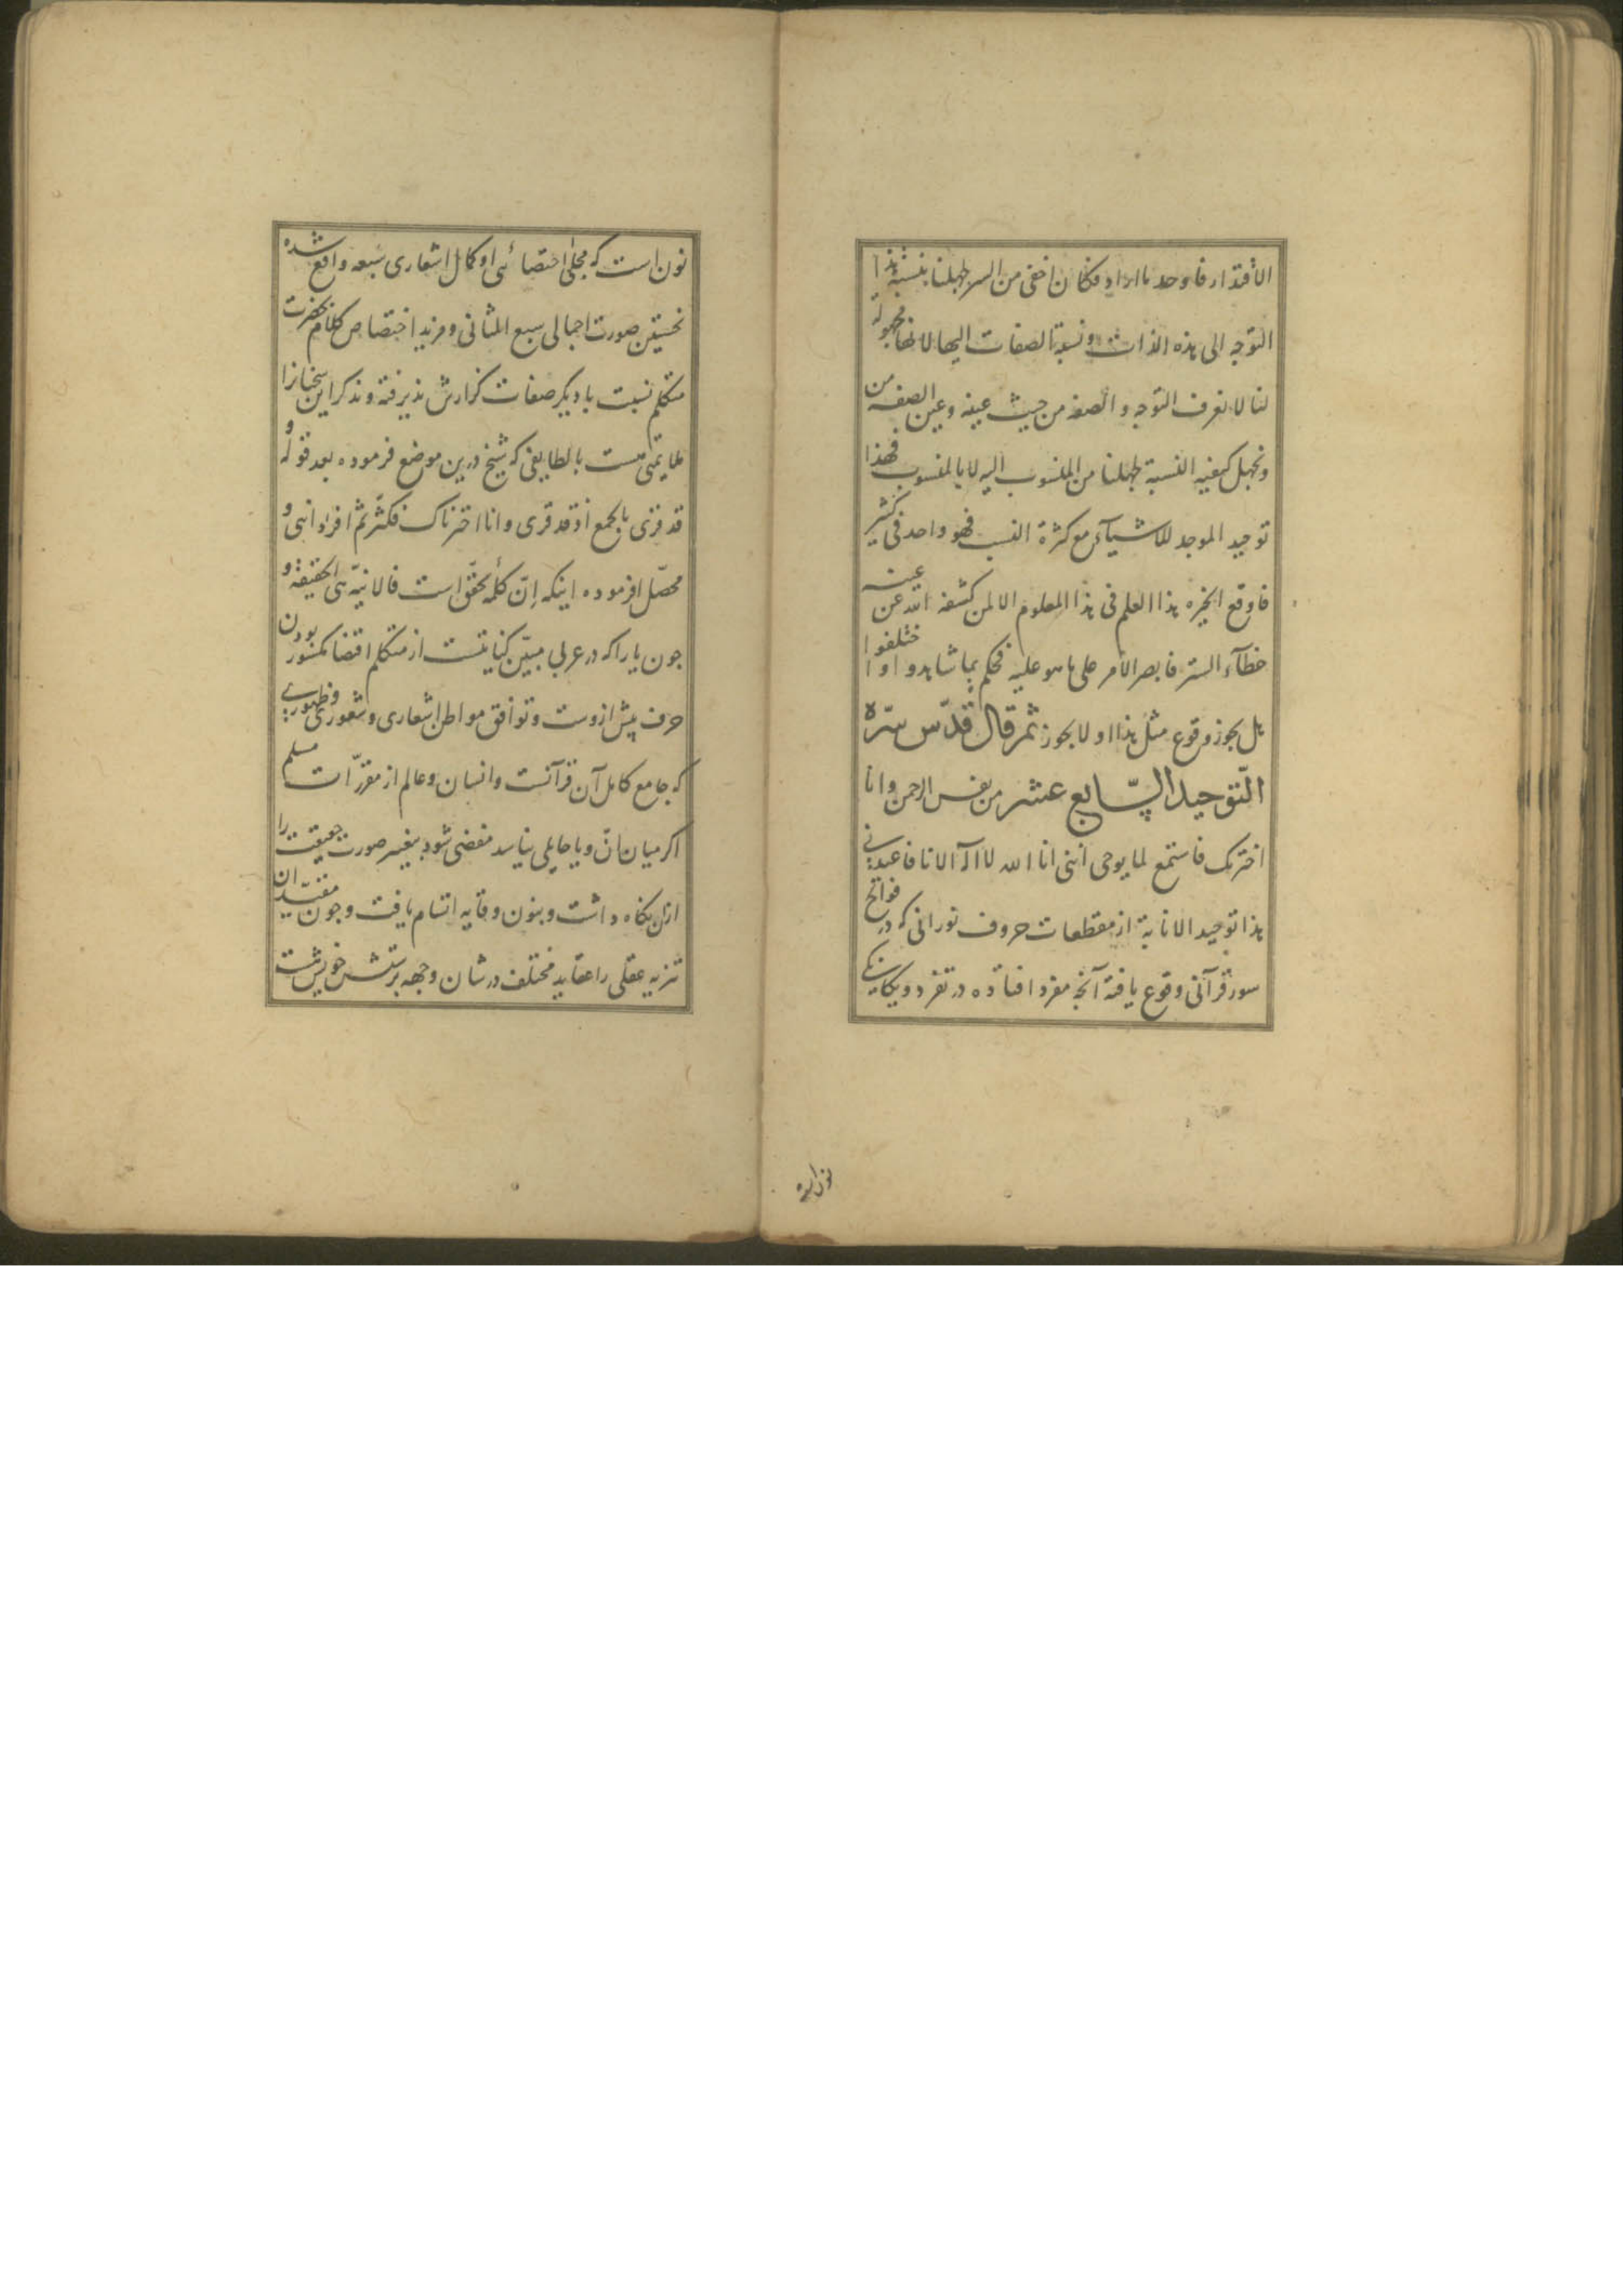 الاقتدار فاوجد ما اراد فكان اخفى من السر لجهلنا بنسبة هذا
التوجه الى هذه الذات ونسبة الصفات اليها لانها مجهولة
لنا لا نعرف التوجه والصفه من حيث عينه وعين الصفه من
ونجهل كيفيه النسبة لجهلنا من المنسوب اليه لا بالمنسوب فهذا
توحيد الموجد للاشيآء مع كثرة النسب فهو واحد فى كثير
فاوقع الحيره هذا العلم فى هذا المعلوم الا لمن كشفه الله عن عينه
غطآء الستر فابصر الامر على ما هو عليه فحكم بما شاهد واختلفوا
هل يجوز وقوع مثل هذا او لا يجوز ثم قال قدّس سرّه
التوحيد السّابع عشر من نفس الرحمن وانا
اخترتك فاستمع لما يوحى اننى انا الله لا اله الا انا فاعبدنى
هذا توحيد الانابة از مقطعات حروف نورانى كه در فواتح
سور قرآنى وقوع يافته آنچه مفرد افتاده در تفرد و يكانكى
نون است
نون است كه مجلى اختصائى او كمال اشعارى سبعه واقع شده
نخستين صورت اجمالى سبع المثانى ومزيد اختصاص كلام بحضرت
متكلم نسبت با ديكر صفات كزارش پذيرفته و ذكر اين سخنانرا
ملايمتى هست با لطايفى كه شيخ درين موضع فرموده بعد قوله و
قد قرى بالجمع اذ قد قرى وانا اخترناك فكثر ثم افرد اننى و
محصّل فرموده اينكه إنّ كلمه تحقّق است فالانيّه هى الحقيقة و
جون يا را كه در عربى مبيّن كنايتست از متكلم اقتضا كمسور بودن
حرف پيش ازوست و توافق مواطن اشعارى و شعورى و ظهورى
كه جامع كامل آن قرآنست و انسان و عالم از مقرّرات مسلم
اكر ميان انّ و يا حايلى نيايد مفضى شود بتغيير صورت حقيقت را
ازان نكاه داشت و بنون وقايه اتسام يافت و جون مقيّدان
تنزيه عقلى را عقايد مختلف در شان وجهه پرستش خويش است